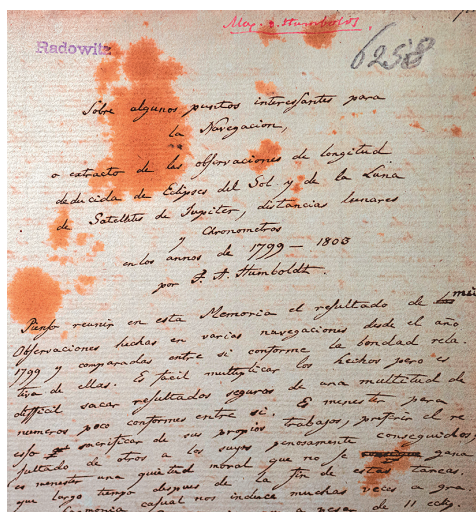 Alex. v. Humboldt.
Radowitz
6258
Sobre algunos puntos interessantes para
la Navegacion,
o extracto de las observaciones de longitud
deducida de Eclipses del Sol y de la Luna
de Satellites de Jupiter, distancias lunares
y Chronometros
en los annos de 1799 – 1803
por F. A. Humboldt.
Pienso reunir en esta Memoria el resultado de mis
Observaciones hechas en varias navegaciones desde el año
1799 y comparadas entre si conforme la bondad rela
tiva de ellas. Es facil multiplicar los hechos pero es
difficil sacar resultados seguros de una multitud de
numeros poco conformes entre si. Es menester para
esso sacrificar de sus propios trabajos, preferir el re
sultado de otros a los suyos penosamente conseguidos,
es menester una quietud moral que no se gana
que largo tiempo despues de la fin de estas tareas.
casual nos induce muchas veces a
a pesar de 11 eclip.